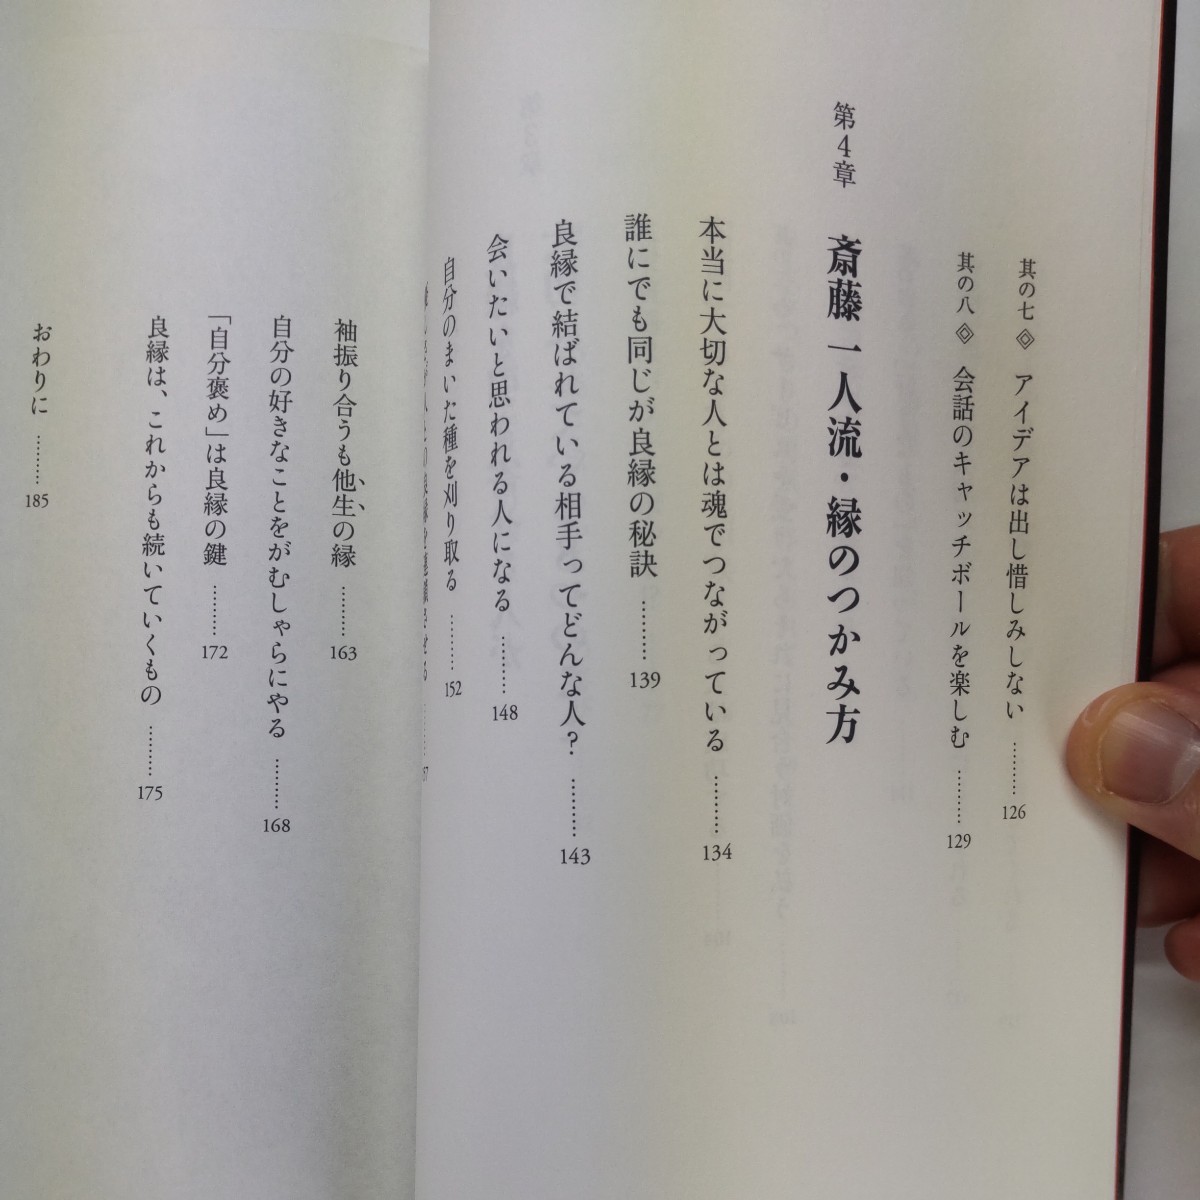 其の七 ◈ アイデアは出し惜しみしない ……… 126
其の八 ◈ 会話のキャッチボールを楽しむ ……… 129
第4章 斎藤一人流・縁のつかみ方
本当に大切な人とは魂でつながっている ……… 134
誰にでも同じが良縁の秘訣 ……… 139
良縁で結ばれている相手ってどんな人？ ……… 143
会いたいと思われる人になる ……… 148
自分のまいた種を刈り取る ……… 152
袖振り合うも他生の縁 ……… 163
自分の好きなことをがむしゃらにやる ……… 168
「自分褒め」は良縁の鍵 ……… 172
良縁は、これからも続いていくもの ……… 175
おわりに ……… 185